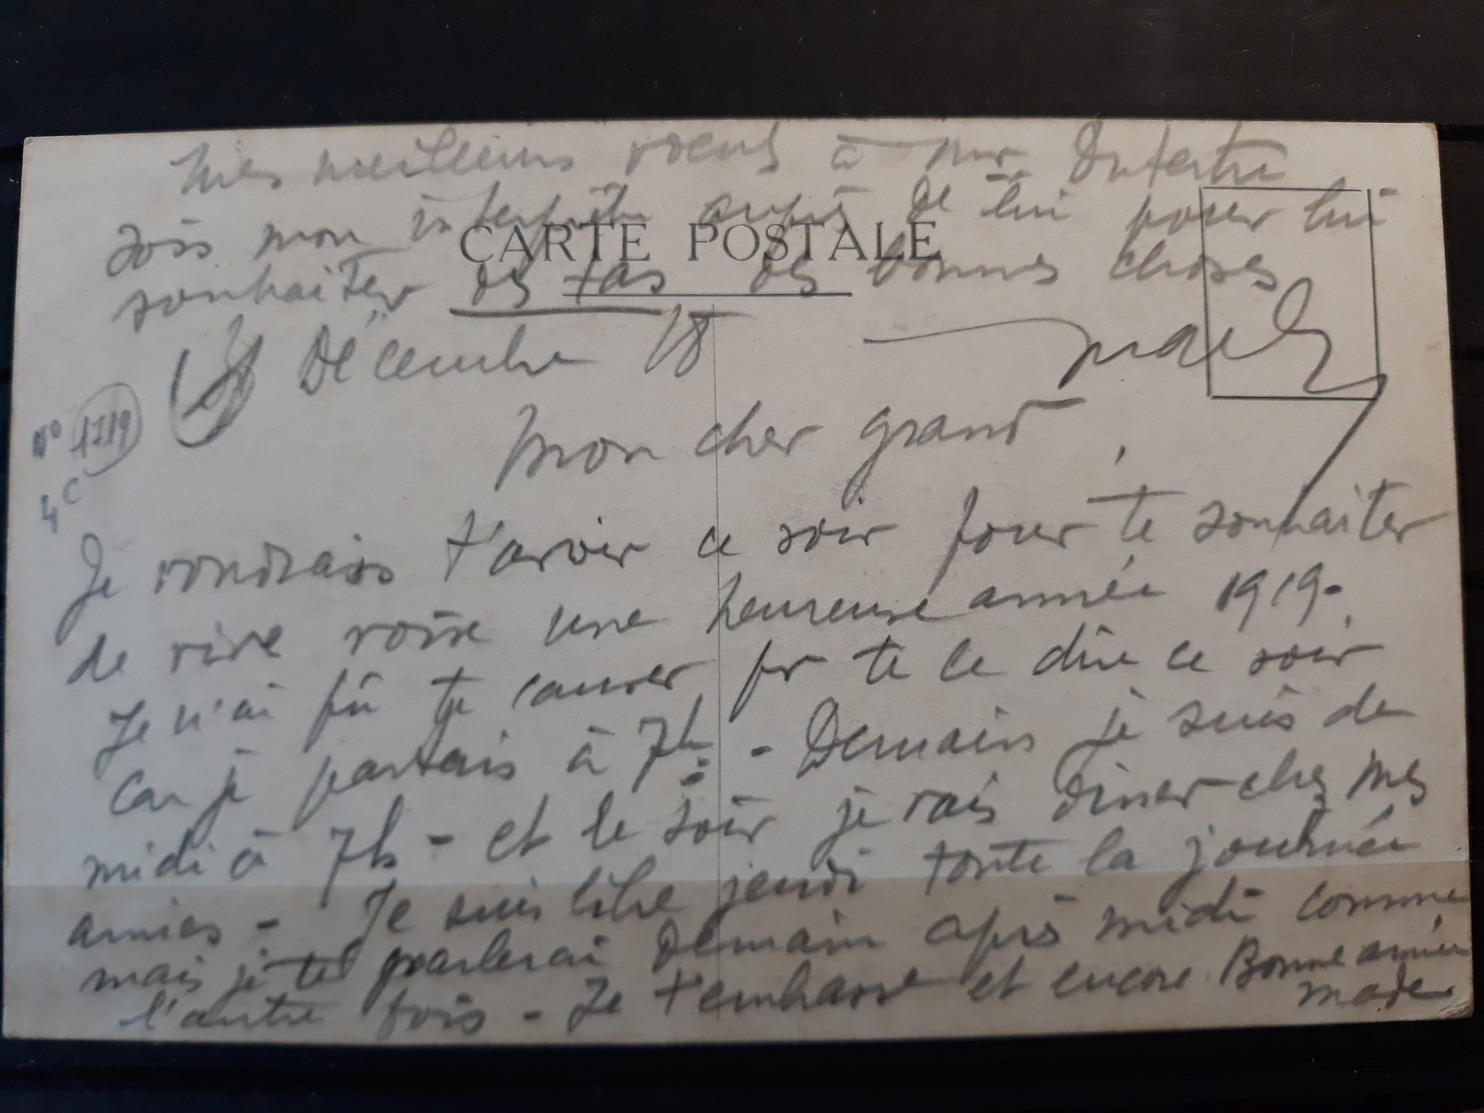 Mes meilleurs voeux à Mr Dutertre
sois mon interprête auprès de lui pour lui
CARTE POSTALE
souhaiter des tas de bonnes choses
Décembre 18
Mady
No 1719
4c
Mon cher grand,
Je voudrais t'avoir ce soir pour te souhaiter
de vive voix une heureuse année 1919-
Je n'ai pû te causer pr te le dire ce soir
car je partais à 7h - Demain je suis de
midi à 7h - et le soir je vais diner chez mes
amies - Je suis libre jeudi toute la journée
mais je te parlerai Demain après midi comme
l'autre fois - Je t'embrasse et encore Bonne année
Made